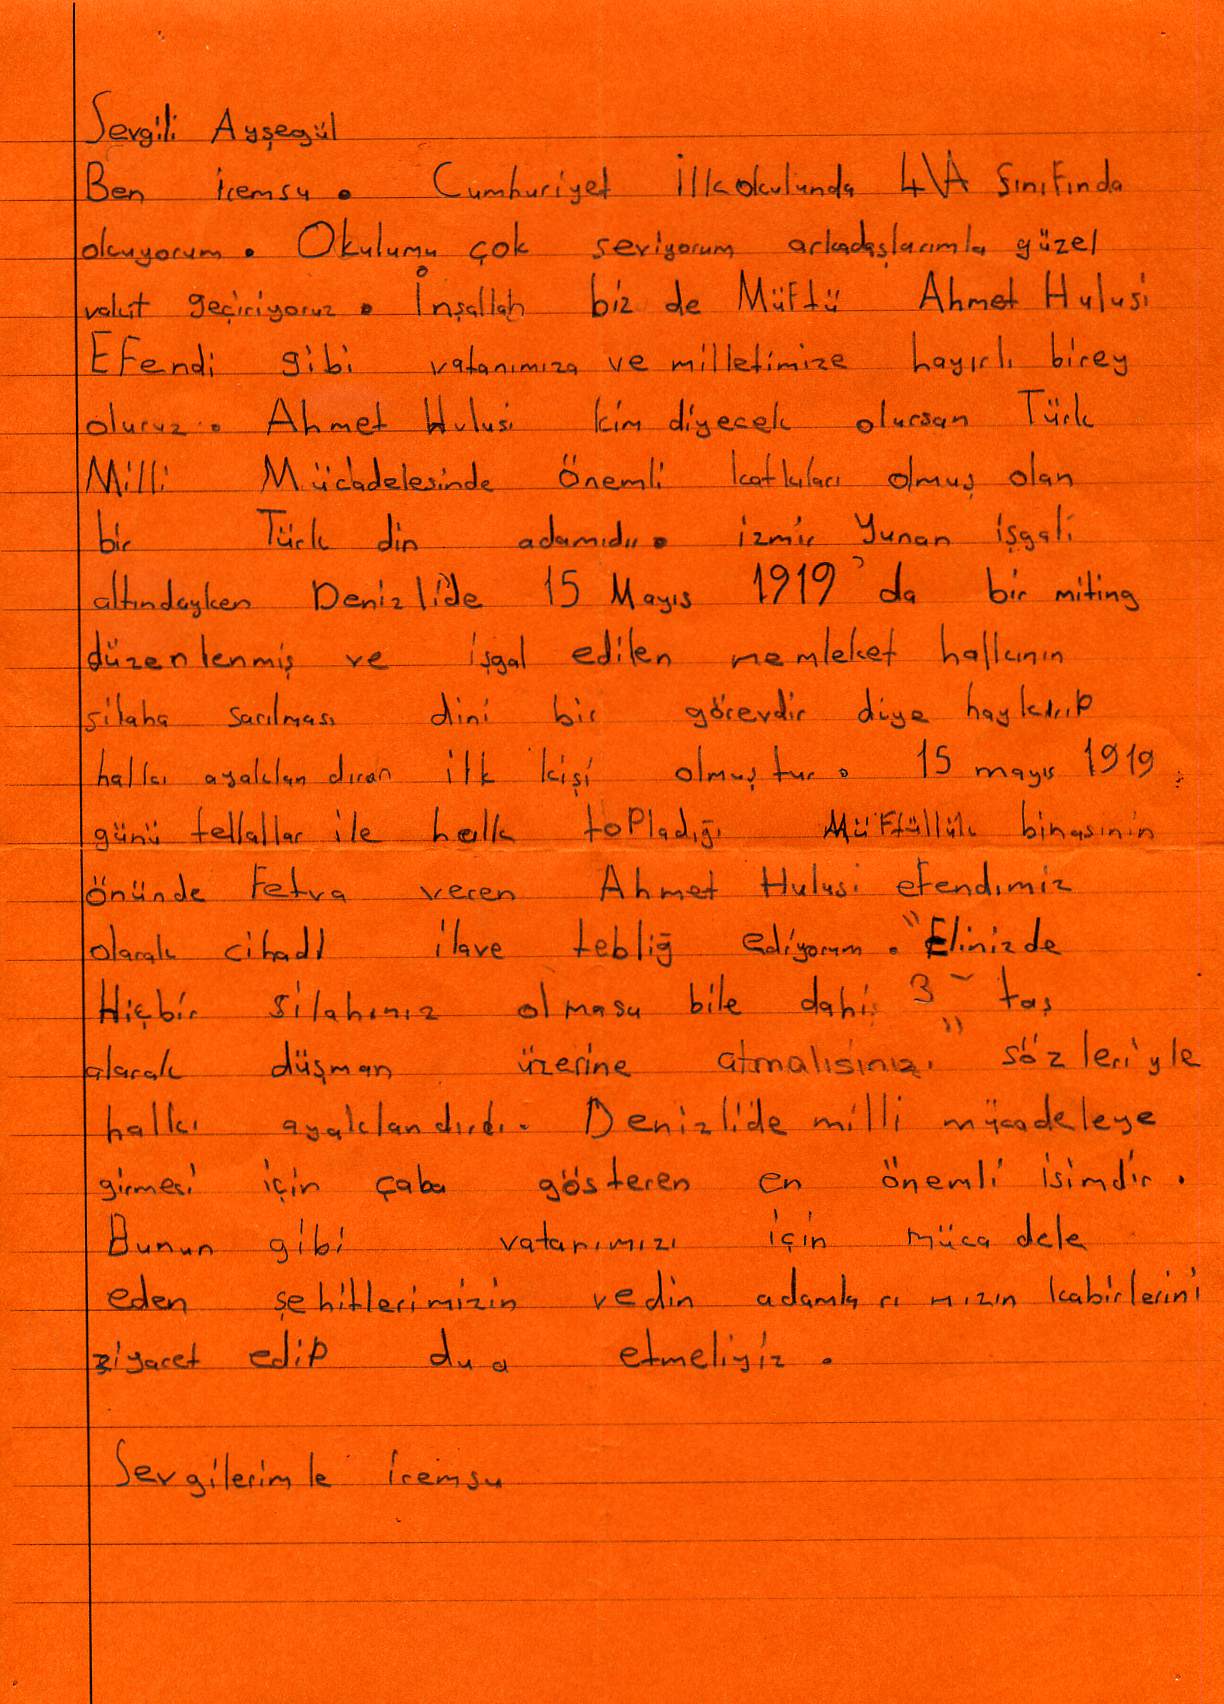 Sevgili Ayşegül
Ben iremsu. Cumhuriyet İlkokulunda 4\A Sınıfında
okuyorum. Okulumu çok seviyorum arkadaşlarımla güzel
vakit geçiriyoruz. İnşallah biz de Müftü Ahmet Hulusi
Efendi gibi vatanımıza ve milletimize hayırlı birey
oluruz. Ahmet Hulusi kim diyecek olursan Türk
Milli Mücadelesinde önemli katkıları olmuş olan
bir Türk din adamıdır. izmir Yunan işgali
altındayken Denizli'de 15 Mayıs 1919'da bir miting
düzenlenmiş ve işgal edilen memleket halkının
silaha sarılması dini bir görevdir diye haykırıp
halkı ayaklandıran ilk kişi olmuştur. 15 mayıs 1919
günü tellallar ile halk topladığı Müftüllük binasının
önünde Fetva veren Ahmet Hulusi efendimiz
olarak cihadı ilave tebliğ ediyorum. "Elinizde
Hiçbir silahınız olmasa bile dahi 3 - taş
alarak düşman üzerine atmalısınız." sözleriyle
halkı ayaklandırdı. Denizli'de milli mücadeleye
girmesi için çaba gösteren en önemli isimdir.
Bunun gibi vatanımızı için mücadele
eden şehitlerimizin vedin adamlarımızın kabirlerini
ziyaret edip dua etmeliyiz.
Sevgilerimle iremsu